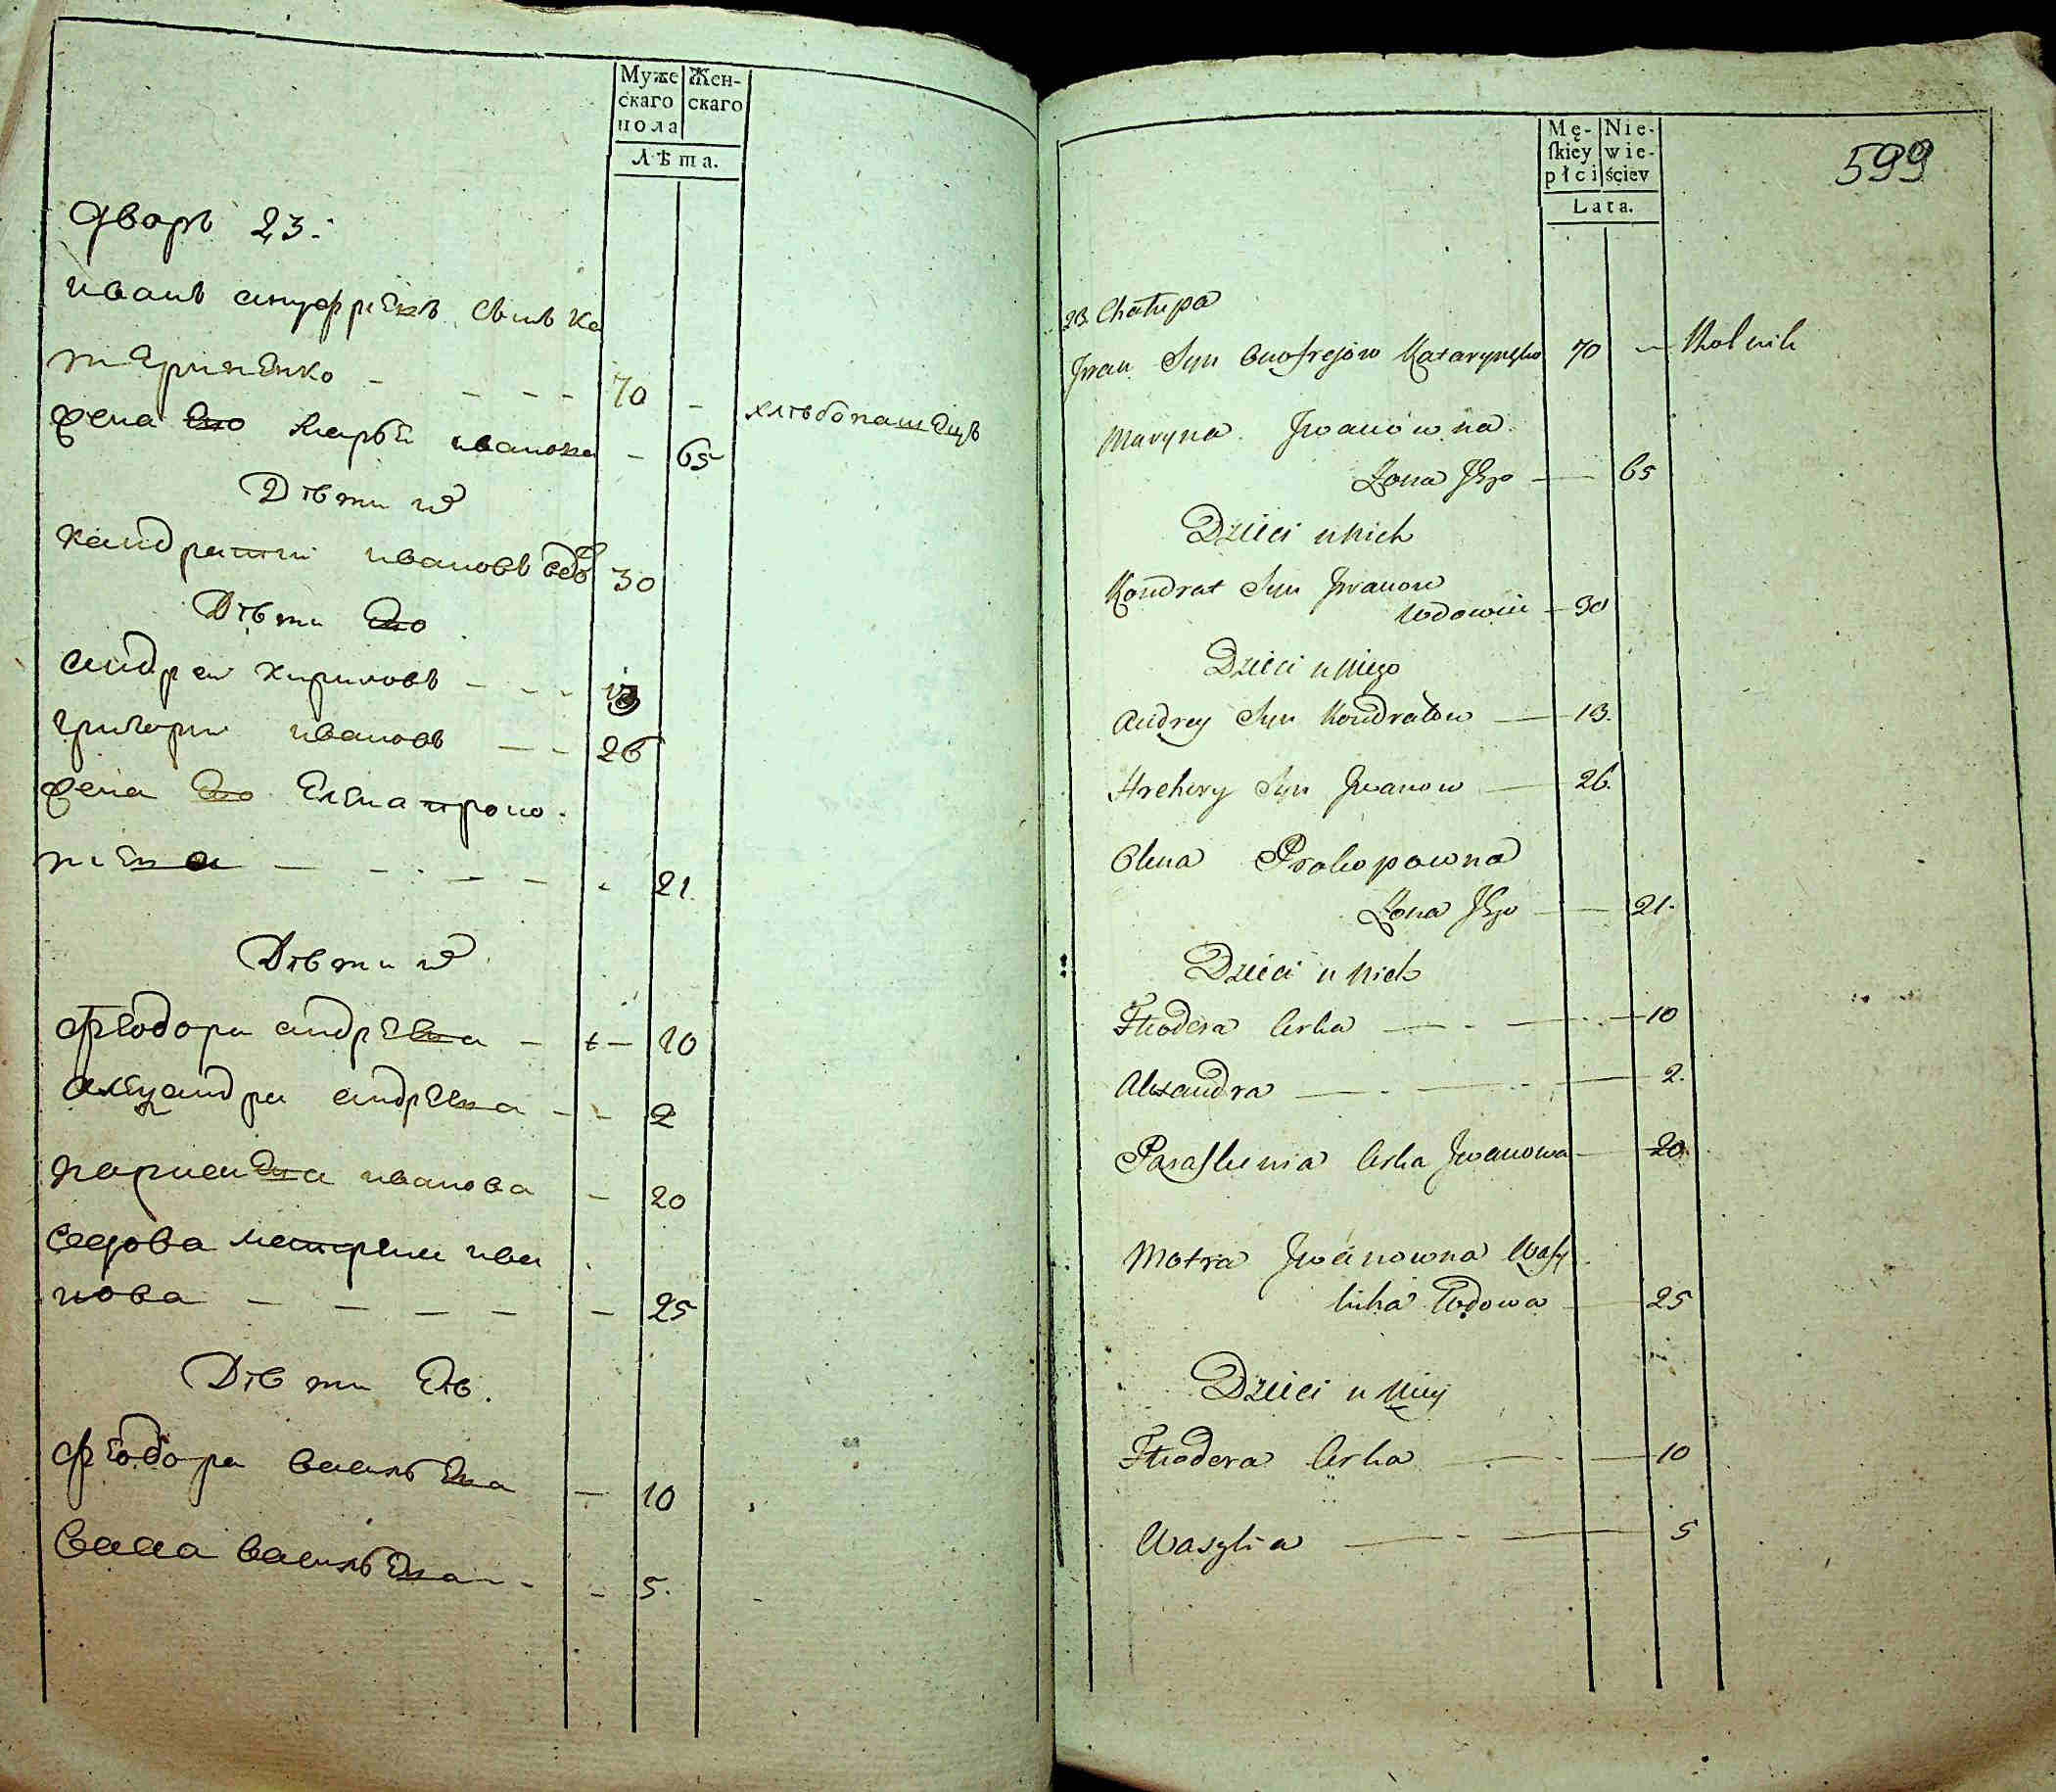 Муже Жен-
скаго скаго
пола
Лѣта.
дворъ 23.
иванъ ануфриевъ Сынъ ка
териненко - - - - 70 -
хлѣбопашецъ
жена его марья иванова - 65
Дѣти их
кандратий ивановъ вдов 30
Дѣти его
андреи кириловъ - - - 13
григории ивановъ - - 26
жена его елена проко
пиева - - - - - 21.
Дѣти их
Феодора андреева - - 10
александра андреева - - 2
парасковиа иванова - 20
вдова матрена ива
нова - - - - - 25
Дѣти еѣ.
Феодора васильева - 10
васса васильева - - - 5.
Mę- Nie-
skiey wie-
płci ściey
Lata.
599
23. Chałupa
Jwan Syn Onofrejów Katarynęko 70 - Rolnik
Maryna Jwanówna
Żona Jego - 65
Dzieci u nich
Kondrat Syn Jwanow
Wdowiec - 30
Dzieci u niego
Andrey Syn Kondratow - 13.
Hrehory Syn Jwanow - 26.
Olena Prokopowna
Żona Jego - 21.
Dzieci u nich
Fheodora Corka - - - 10
Alexandra - - - 2.
Paraskewia Corka Jwanowa - 20.
Motra Jwanowna Wasy
licha Wdowa - 25
Dzieci u niey
Fheodora Corka - - 10
Wasylia - - - 5